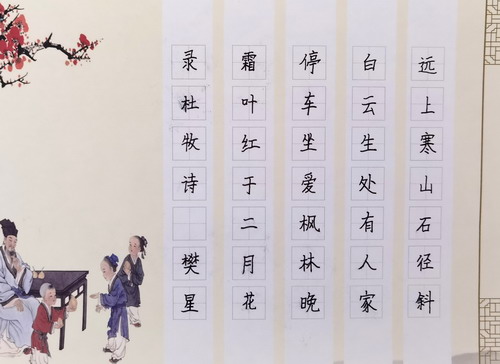 远上寒山石径斜
白云生处有人家
停车坐爱枫林晚
霜叶红于二月花
录杜牧诗 樊星